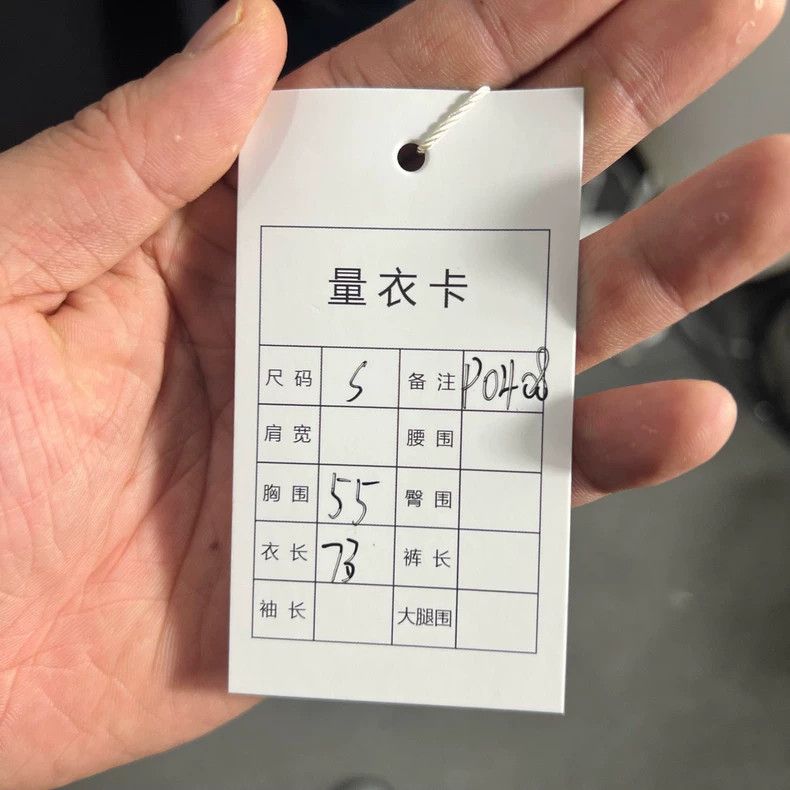 量衣卡
尺码 S 备注 P0408
肩宽 腰围
胸围 55 臀围
衣长 73 裤长
袖长 大腿围